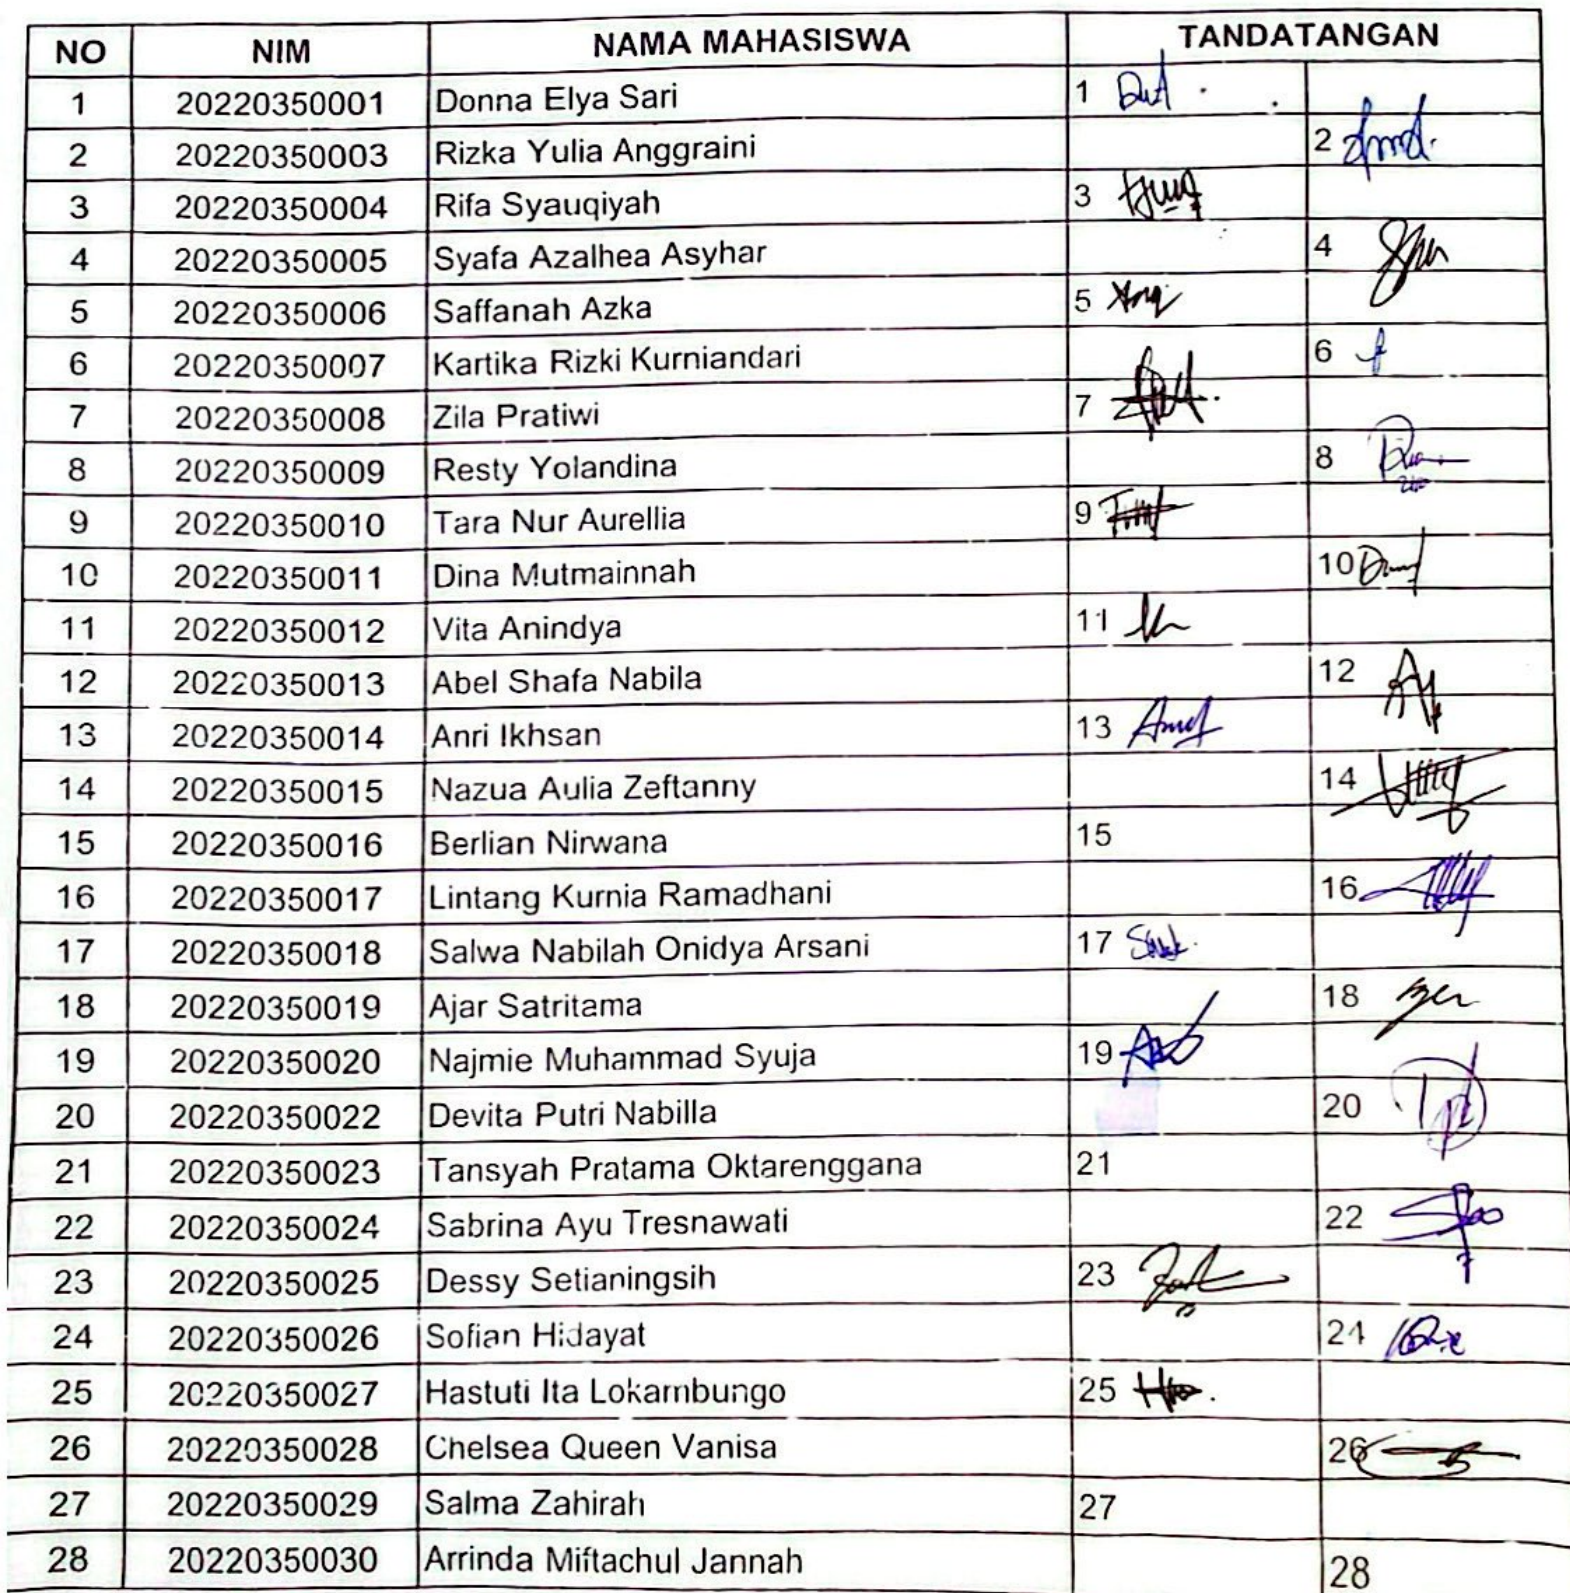 NO NIM NAMA MAHASISWA TANDATANGAN
1 20220350001 Donna Elya Sari 1
2 20220350003 Rizka Yulia Anggraini 2
3 20220350004 Rifa Syauqiyah 3
4 20220350005 Syafa Azalhea Asyhar 4
5 20220350006 Saffanah Azka 5
6 20220350007 Kartika Rizki Kurniandari 6
7 20220350008 Zila Pratiwi 7
8 20220350009 Resty Yolandina 8
9 20220350010 Tara Nur Aurellia 9
10 20220350011 Dina Mutmainnah 10
11 20220350012 Vita Anindya 11
12 20220350013 Abel Shafa Nabila 12
13 20220350014 Anri Ikhsan 13
14 20220350015 Nazua Aulia Zeftanny 14
15 20220350016 Berlian Nirwana 15
16 20220350017 Lintang Kurnia Ramadhani 16
17 20220350018 Salwa Nabilah Onidya Arsani 17
18 20220350019 Ajar Satritama 18
19 20220350020 Najmie Muhammad Syuja 19
20 20220350022 Devita Putri Nabilla 20
21 20220350023 Tansyah Pratama Oktarenggana 21
22 20220350024 Sabrina Ayu Tresnawati 22
23 20220350025 Dessy Setianingsih 23
24 20220350026 Sofian Hidayat 24
25 20220350027 Hastuti Ita Lokambungo 25
26 20220350028 Chelsea Queen Vanisa 26
27 20220350029 Salma Zahirah 27
28 20220350030 Arrinda Miftachul Jannah 28